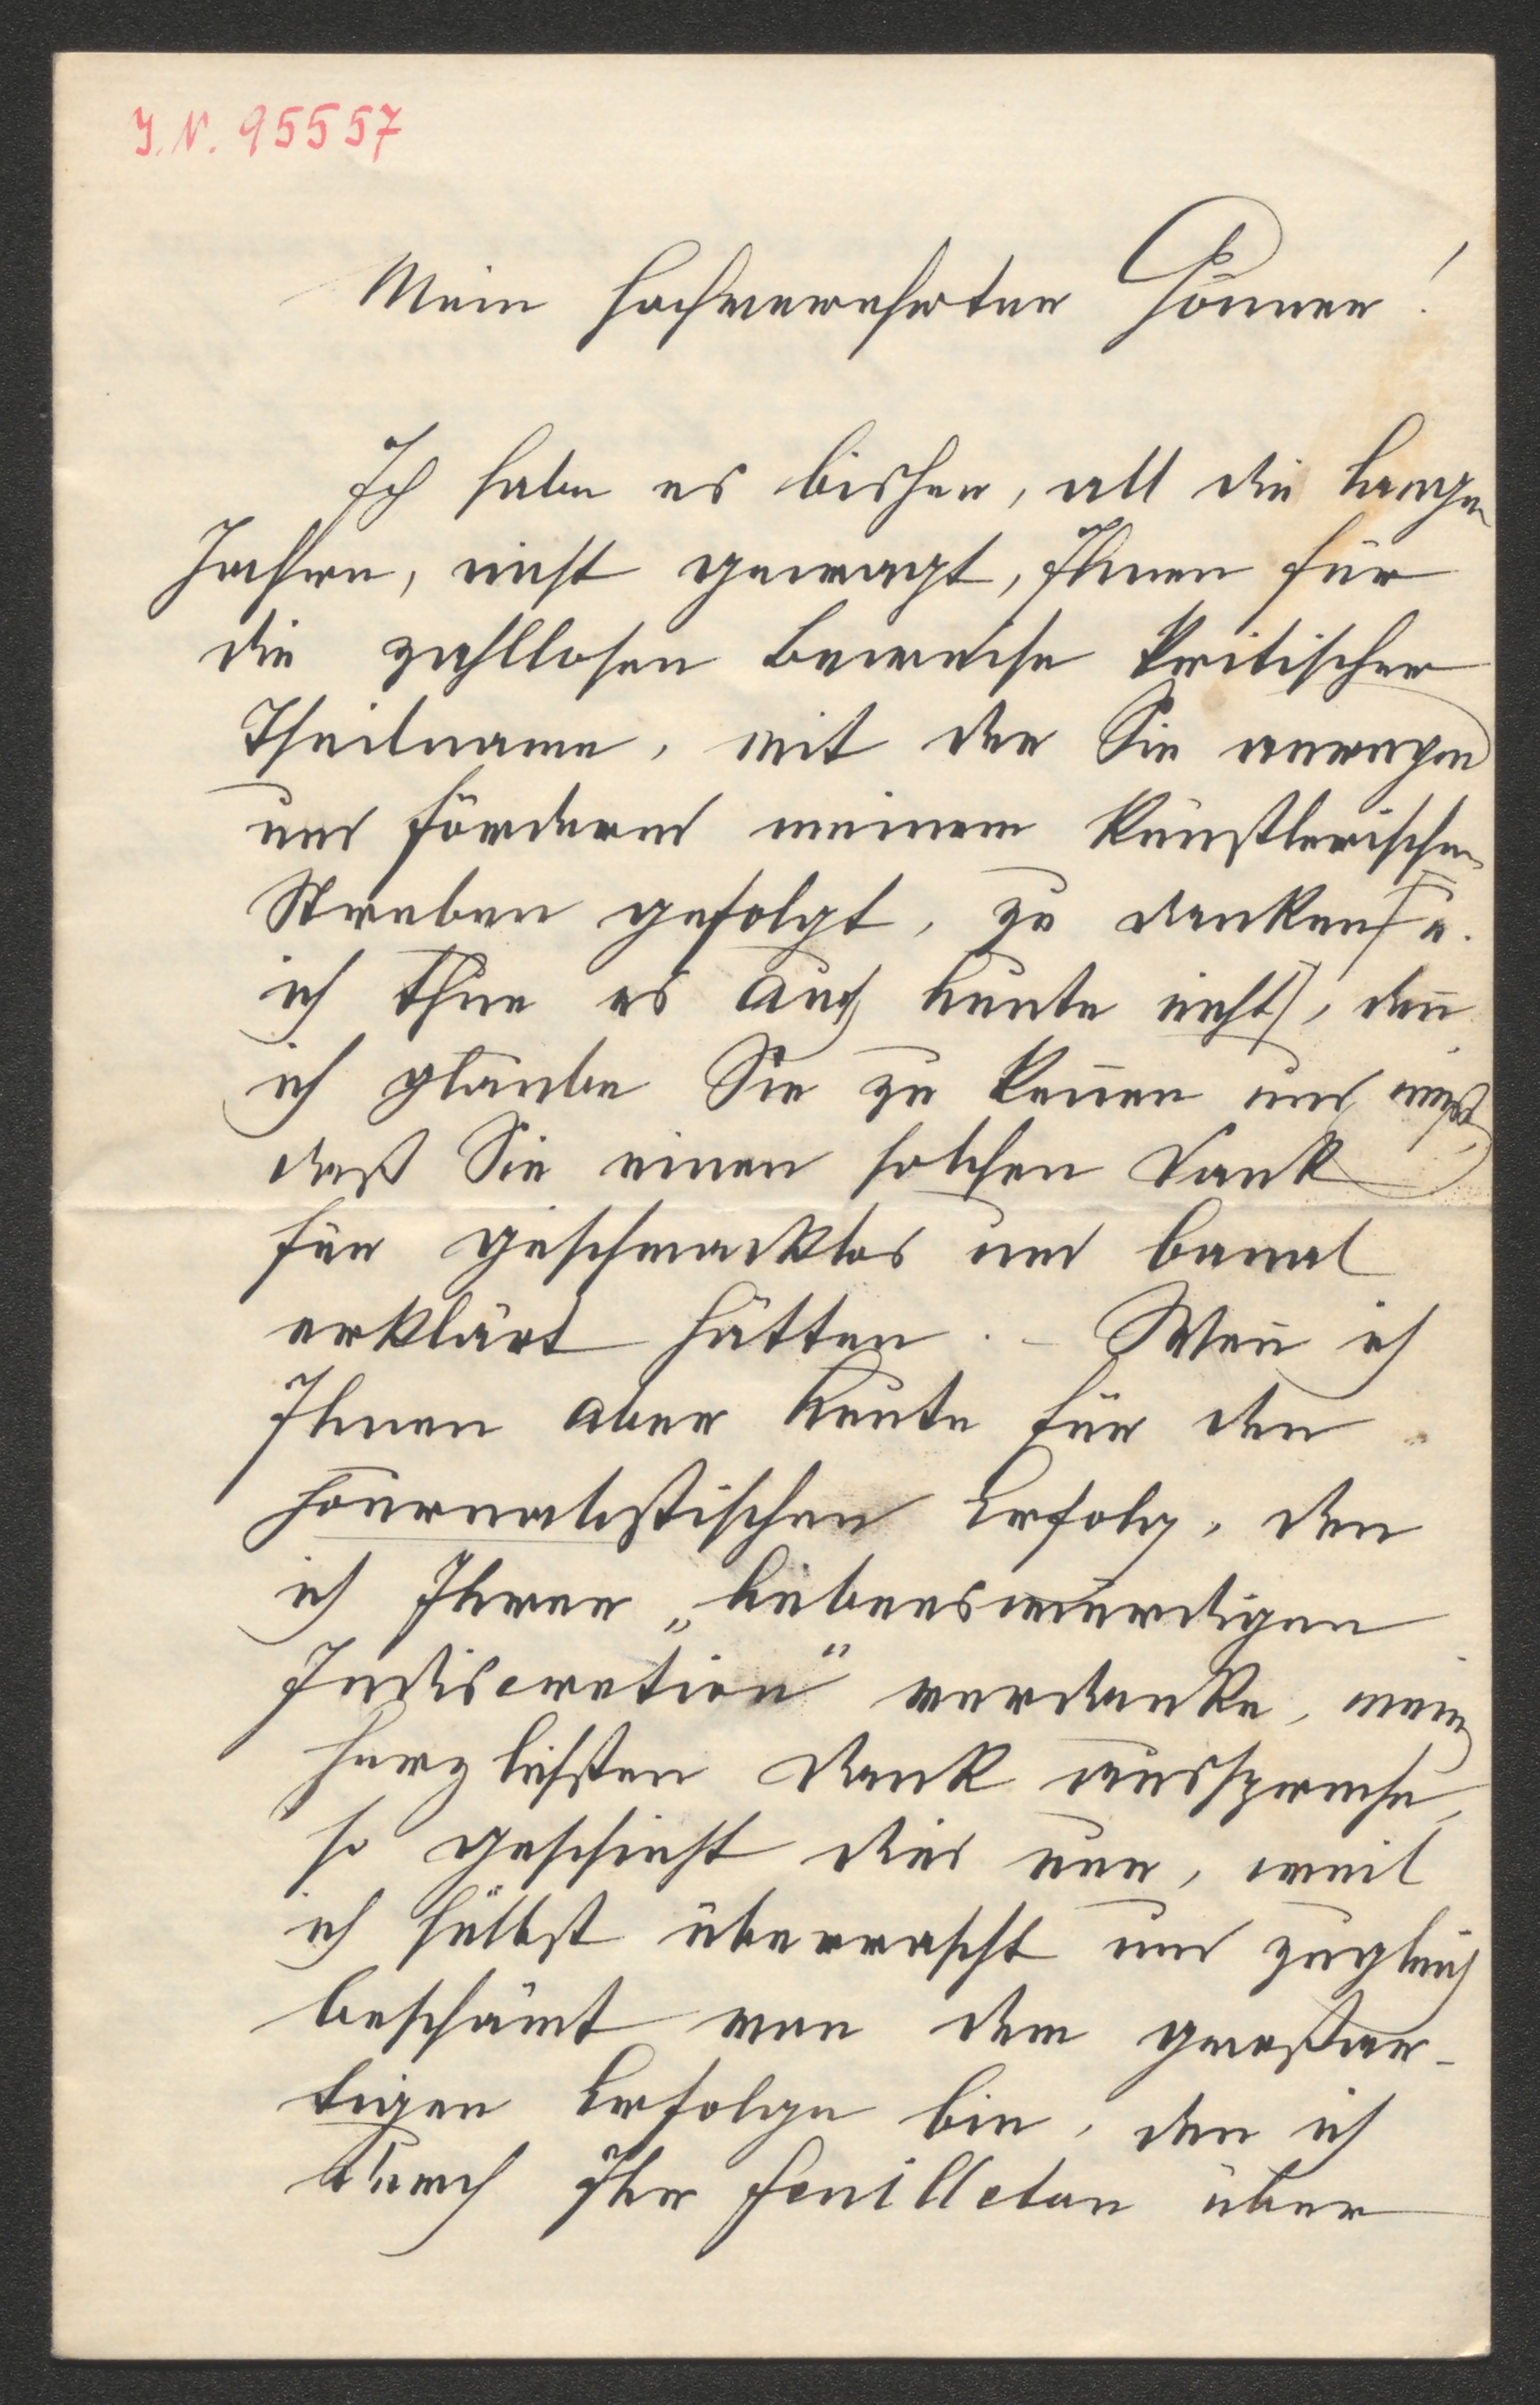 J. N. 95557
Mein hochverehrter Gönner!
Ich habe es bisher, all die langen
Jahre, nicht gewagt, Ihnen für
die zahllosen Beweise kritischer
Theilname, mit der Sie anregend
und fördernd meinem künstlerischen
Streben gefolgt, zu danken [u.
ich thue es auch heute nicht], den̄
ich glaube Sie zu ken̄en und weiß,
daß Sie einen solchen Dank
für geschmacklos und banal
erklärt hätten. – Wen̄ ich
Ihnen aber heute für den
journalistischen Erfolg, den
ich Ihrer „liebenswürdigen
Indiscretion“ verdanke, mein
herzlichsten Dank ausspreche,
so geschieht dies nur, weil
ich selbst überrascht und zugleich
beschämt von dem großar-
tigen Erfolge bin, den ich
durch Ihr Feuilleton über